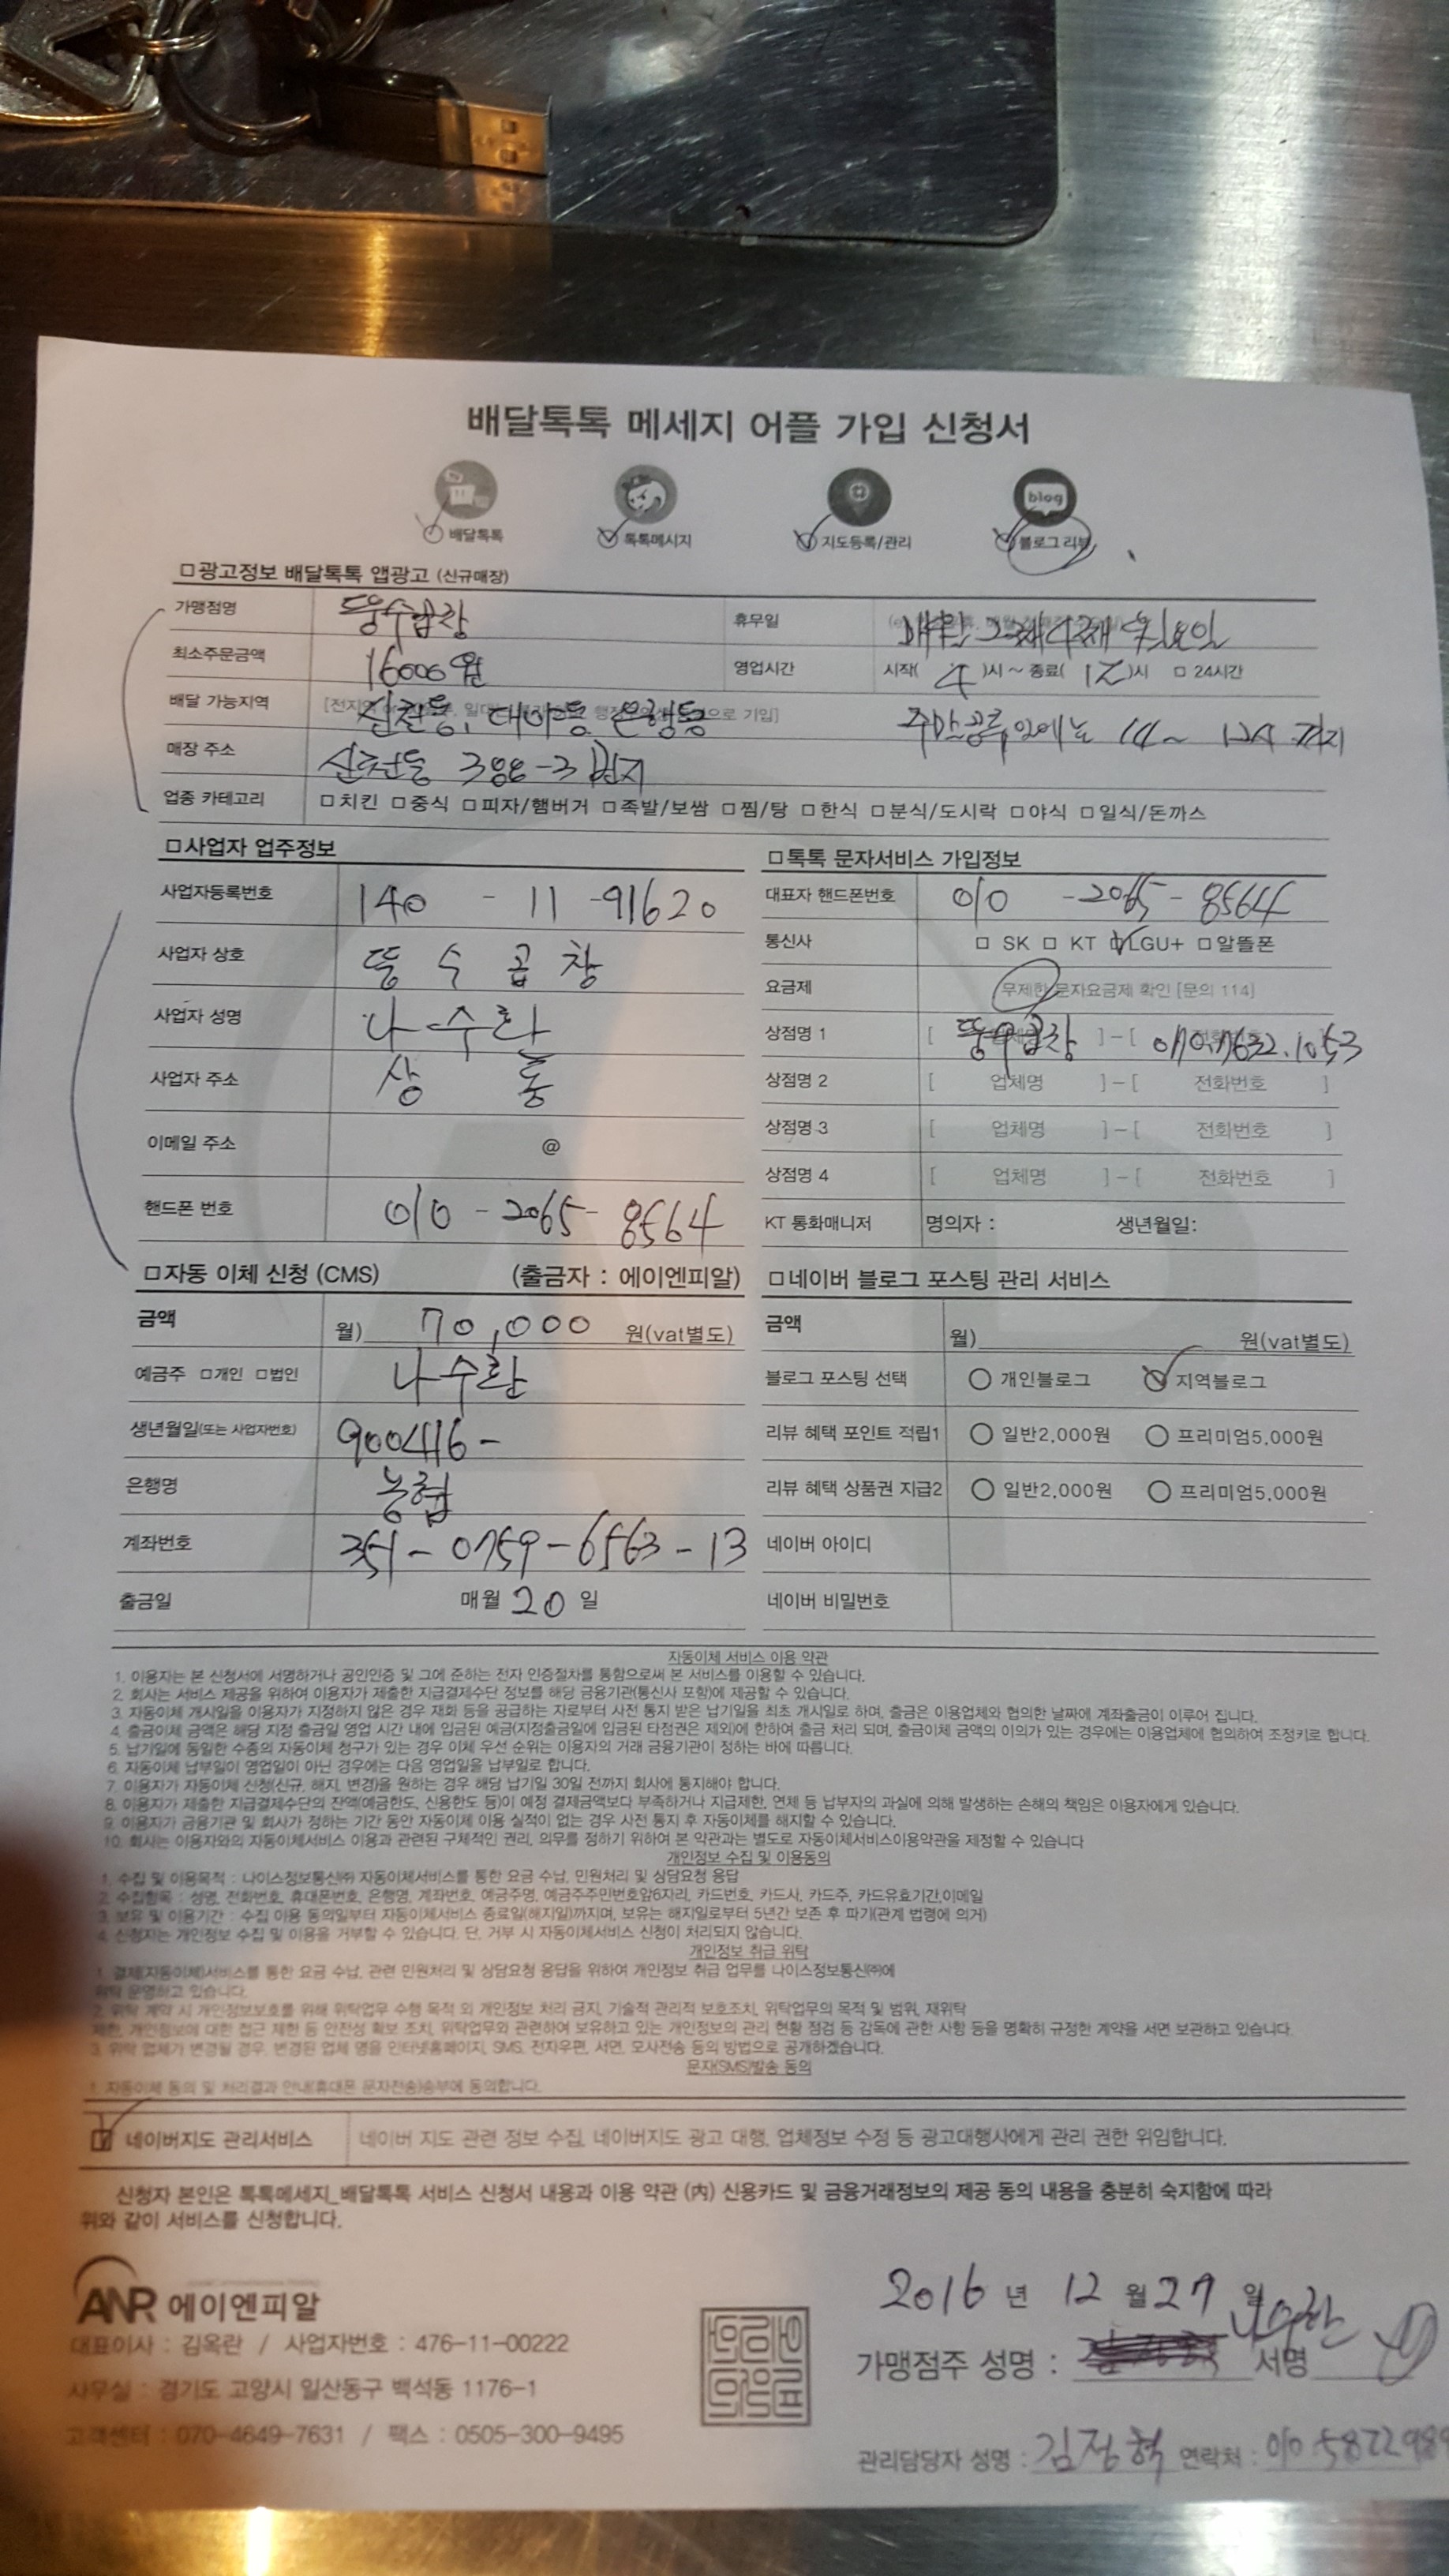 배달톡톡 메세지 어플 가입 신청서
blog
배달톡톡 톡톡메시지 지도등록/관리 블로그 리뷰
□광고정보 배달톡톡 앱광고 (신규매장)
가맹점명 뚱수곱창 휴무일 매월 두째 넷째 월요일
최소주문금액 16000원 영업시간 시작( 4 )시 ~ 종료( 12 )시 □ 24시간
배달 가능지역 신천동, 대야동 은행동 주말공휴일에는
매장 주소 신천동 388-3번지
업종 카테고리 □치킨 □중식 □피자/햄버거 □족발/보쌈 □찜/탕 □한식 □분식/도시락 □야식 □일식/돈까스
□사업자 업주정보
사업자등록번호 140 - 11 -91620
사업자 상호 뚱 수 곱 창
사업자 성명 나 수 란
사업자 주소 상 동
이메일 주소 @
핸드폰 번호 010 - 2065 - 8564
□톡톡 문자서비스 가입정보
대표자 핸드폰번호 010 -2065 - 8564
통신사 □ SK □ KT □LGU+ □알뜰폰
요금제 무제한 문자요금제 확인 [문의 114]
상점명 1 [ 뚱수곱창 ] - [ 070.7632.1053
상점명 2 [ 업체명 ] - [ 전화번호 ]
상점명 3 [ 업체명 ] - [ 전화번호 ]
상점명 4 [ 업체명 ] - [ 전화번호 ]
KT 통화매니저 명의자 : 생년월일:
□자동 이체 신청 (CMS) (출금자 : 에이엔피알)
금액 월) 70,000 원(vat별도)
예금주 □개인 □법인 나수란
생년월일(또는 사업자번호) 900416-
은행명 농협
계좌번호 351 - 0759 - 6563 - 13
출금일 매월 20 일
□네이버 블로그 포스팅 관리 서비스
금액 월) 원(vat별도)
블로그 포스팅 선택 ○ 개인블로그 ○ 지역블로그
리뷰 혜택 포인트 적립1 ○ 일반2,000원 ○ 프리미엄5,000원
리뷰 혜택 상품권 지급2 ○ 일반2,000원 ○ 프리미엄5,000원
네이버 아이디
네이버 비밀번호
자동이체 서비스 이용 약관
1. 이용자는 본 신청서에 서명하거나 공인인증 및 그에 준하는 전자 인증절차를 통함으로써 본 서비스를 이용할 수 있습니다.
2. 회사는 서비스 제공을 위하여 이용자가 제출한 지급결제수단 정보를 해당 금융기관(통신사 포함)에 제공할 수 있습니다.
3. 자동이체 개시일을 이용자가 지정하지 않은 경우 재화 등을 공급하는 자로부터 사전 통지 받은 납기일을 최초 개시일로 하며, 출금은 이용업체와 협의한 날짜에 계좌출금이 이루어 집니다.
4. 출금이체 금액은 해당 지정 출금일 영업 시간 내에 입금된 예금(지정출금일에 입금된 타점권은 제외)에 한하여 출금 처리 되며, 출금이체 금액의 이의가 있는 경우에는 이용업체에 협의하여 조정키로 합니다.
5. 납기일에 동일한 수종의 자동이체 청구가 있는 경우 이체 우선 순위는 이용자의 거래 금융기관이 정하는 바에 따릅니다.
6. 자동이체 납부일이 영업일이 아닌 경우에는 다음 영업일을 납부일로 합니다.
7. 이용자가 자동이체 신청(신규, 해지, 변경)을 원하는 경우 해당 납기일 30일 전까지 회사에 통지해야 합니다.
8. 이용자가 제출한 지급결제수단의 잔액(예금한도, 신용한도 등)이 예정 결제금액보다 부족하거나 지급제한, 연체 등 납부자의 과실에 의해 발생하는 손해의 책임은 이용자에게 있습니다.
9. 이용자가 금융기관 및 회사가 정하는 기간 동안 자동이체 이용 실적이 없는 경우 사전 통지 후 자동이체를 해지할 수 있습니다.
10. 회사는 이용자와의 자동이체서비스 이용과 관련된 구체적인 권리, 의무를 정하기 위하여 본 약관과는 별도로 자동이체서비스이용약관을 제정할 수 있습니다
개인정보 수집 및 이용동의
1. 수집 및 이용목적 : 나이스정보통신㈜ 자동이체서비스를 통한 요금 수납, 민원처리 및 상담요청 응답
2. 수집항목 : 성명, 전화번호, 휴대폰번호, 은행명, 계좌번호, 예금주명, 예금주주민번호앞6자리, 카드번호, 카드사, 카드주, 카드유효기간,이메일
3. 보유 및 이용기간 : 수집 이용 동의일부터 자동이체서비스 종료일(해지일)까지며, 보유는 해지일로부터 5년간 보존 후 파기(관계 법령에 의거)
4. 신청자는 개인정보 수집 및 이용을 거부할 수 있습니다. 단, 거부 시 자동이체서비스 신청이 처리되지 않습니다.
개인정보 취급 위탁
1. 결제(자동이체)서비스를 통한 요금 수납, 관련 민원처리 및 상담요청 응답을 위하여 개인정보 취급 업무를 나이스정보통신㈜에
위탁 운영하고 있습니다.
2. 위탁 계약 시 개인정보보호를 위해 위탁업무 수행 목적 외 개인정보 처리 금지, 기술적 관리적 보호조치, 위탁업무의 목적 및 범위, 재위탁
제한, 개인정보에 대한 접근 제한 등 안전성 확보 조치, 위탁업무와 관련하여 보유하고 있는 개인정보의 관리 현황 점검 등 감독에 관한 사항 등을 명확히 규정한 계약을 서면 보관하고 있습니다.
3. 위탁 업체가 변경될 경우, 변경된 업체 명을 인터넷홈페이지, SMS, 전자우편, 서면, 모사전송 등의 방법으로 공개하겠습니다.
문자(SMS)발송 동의
1. 자동이체 동의 및 처리결과 안내(휴대폰 문자전송)송부에 동의합니다.
네이버지도 관리서비스 네이버 지도 관련 정보 수집, 네이버지도 광고 대행, 업체정보 수정 등 광고대행사에게 관리 권한 위임합니다.
신청자 본인은 톡톡메세지_배달톡톡 서비스 신청서 내용과 이용 약관 (內) 신용카드 및 금융거래정보의 제공 동의 내용을 충분히 숙지함에 따라
위와 같이 서비스를 신청합니다.
2016 년 12 월 27 일
ANR 에이엔피알
대표이사 : 김옥란 / 사업자번호 : 476-11-00222
사무실 : 경기도 고양시 일산동구 백석동 1176-1
고객센터 : 070-4649-7631 / 팩스 : 0505-300-9495
가맹점주 성명 : 나수란 서명
관리담당자 성명 : 김정혁 연락처 : 010.5822989